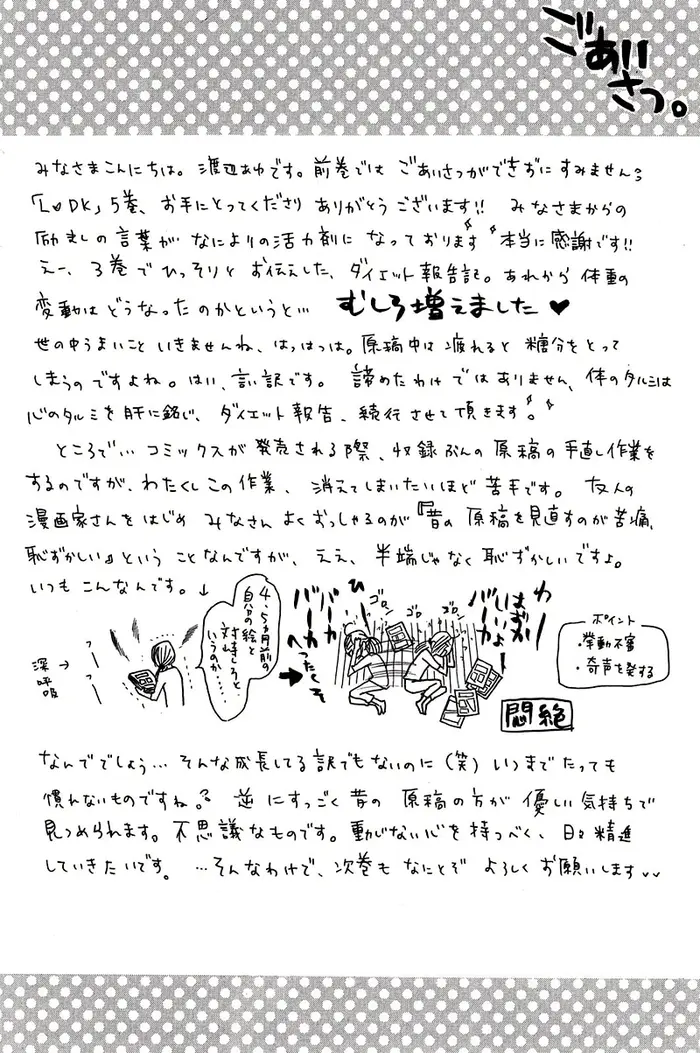 ごあいさつ。
みなさまこんにちは。渡辺あゆです。前巻ではごあいさつができずにすみません〜
「L♥DK」5巻、お手にとってくださりありがとうございます!! みなさまからの
励ましの言葉がなによりの活力剤になっております 本当に感謝です!!
えー、3巻でひっそりとお伝えした、ダイエット報告記。あれから体重の
変動はどうなったのかというと… むしろ増えました♥
世の中うまいこといきませんね、はっはっは。原稿中は疲れると糖分をとって
しまうのですよね。はい、言い訳です。 諦めたわけではありません、体のタルミは
心のタルミを肝に銘じ、ダイエット報告、続行させて頂きます。
ところで… コミックスが発売される際、収録ぶんの原稿の手直し作業を
するのですが、わたくしこの作業、消えてしまいたいほど苦手です。友人の
漫画家さんをはじめみなさんよくおっしゃるのが『昔の原稿を見直すのが苦痛、
恥ずかしい』ということなんですが、ええ、半端じゃなく恥ずかしいですよ。
いつもこんなんです。↓
深呼吸→
フー
フー
4、5ヵ月前の
自分の絵と
対峙しろと
いうのか……
➡
わーー
はずかしいよー
バーカ
ゴロ
ゴロ
ゴロ
ひー
バーカ
バーカ
へったくそ
悶絶
ポイント
・挙動不審
・奇声を発する
なんででしょう… そんな成長してる訳でもないのに(笑)いつまでたっても
慣れないものですね。逆にすっごく昔の原稿の方が優しい気持ちで
見つめられます。不思議なものです。動じない心を持つべく、日々精進
していきたいです。 …そんなわけで、次巻もなにとぞよろしくお願いします